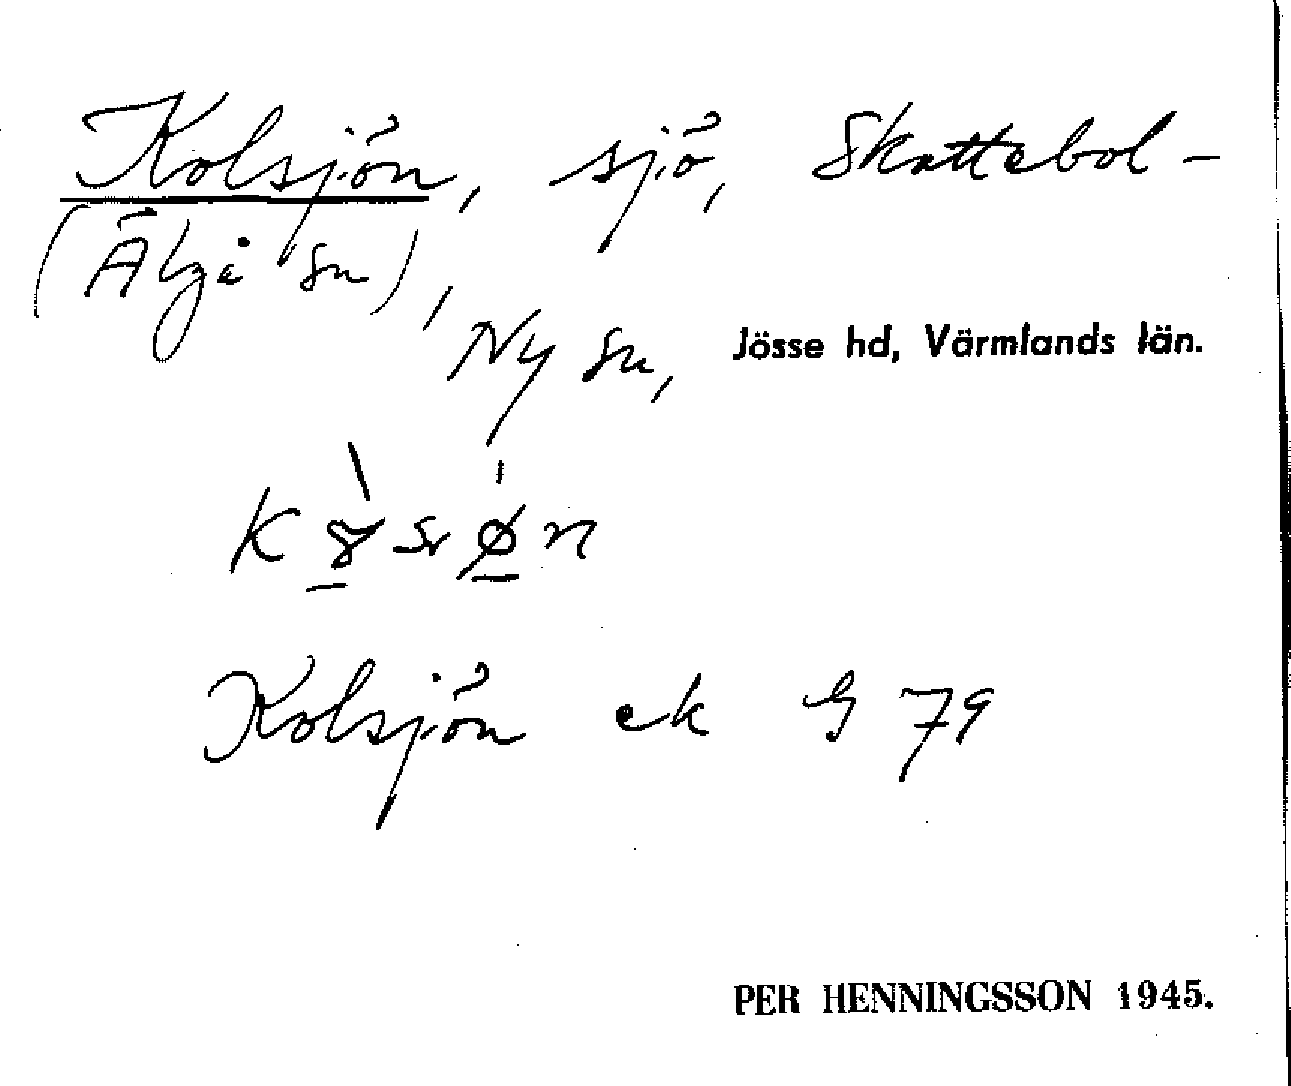 Kolsjön, sjö, Skattebol-
(Älgå sn),
Ny sn, Jösse hd, Värmlands län.
Kolsjön ek G 79
PER HENNINGSSON 1945.